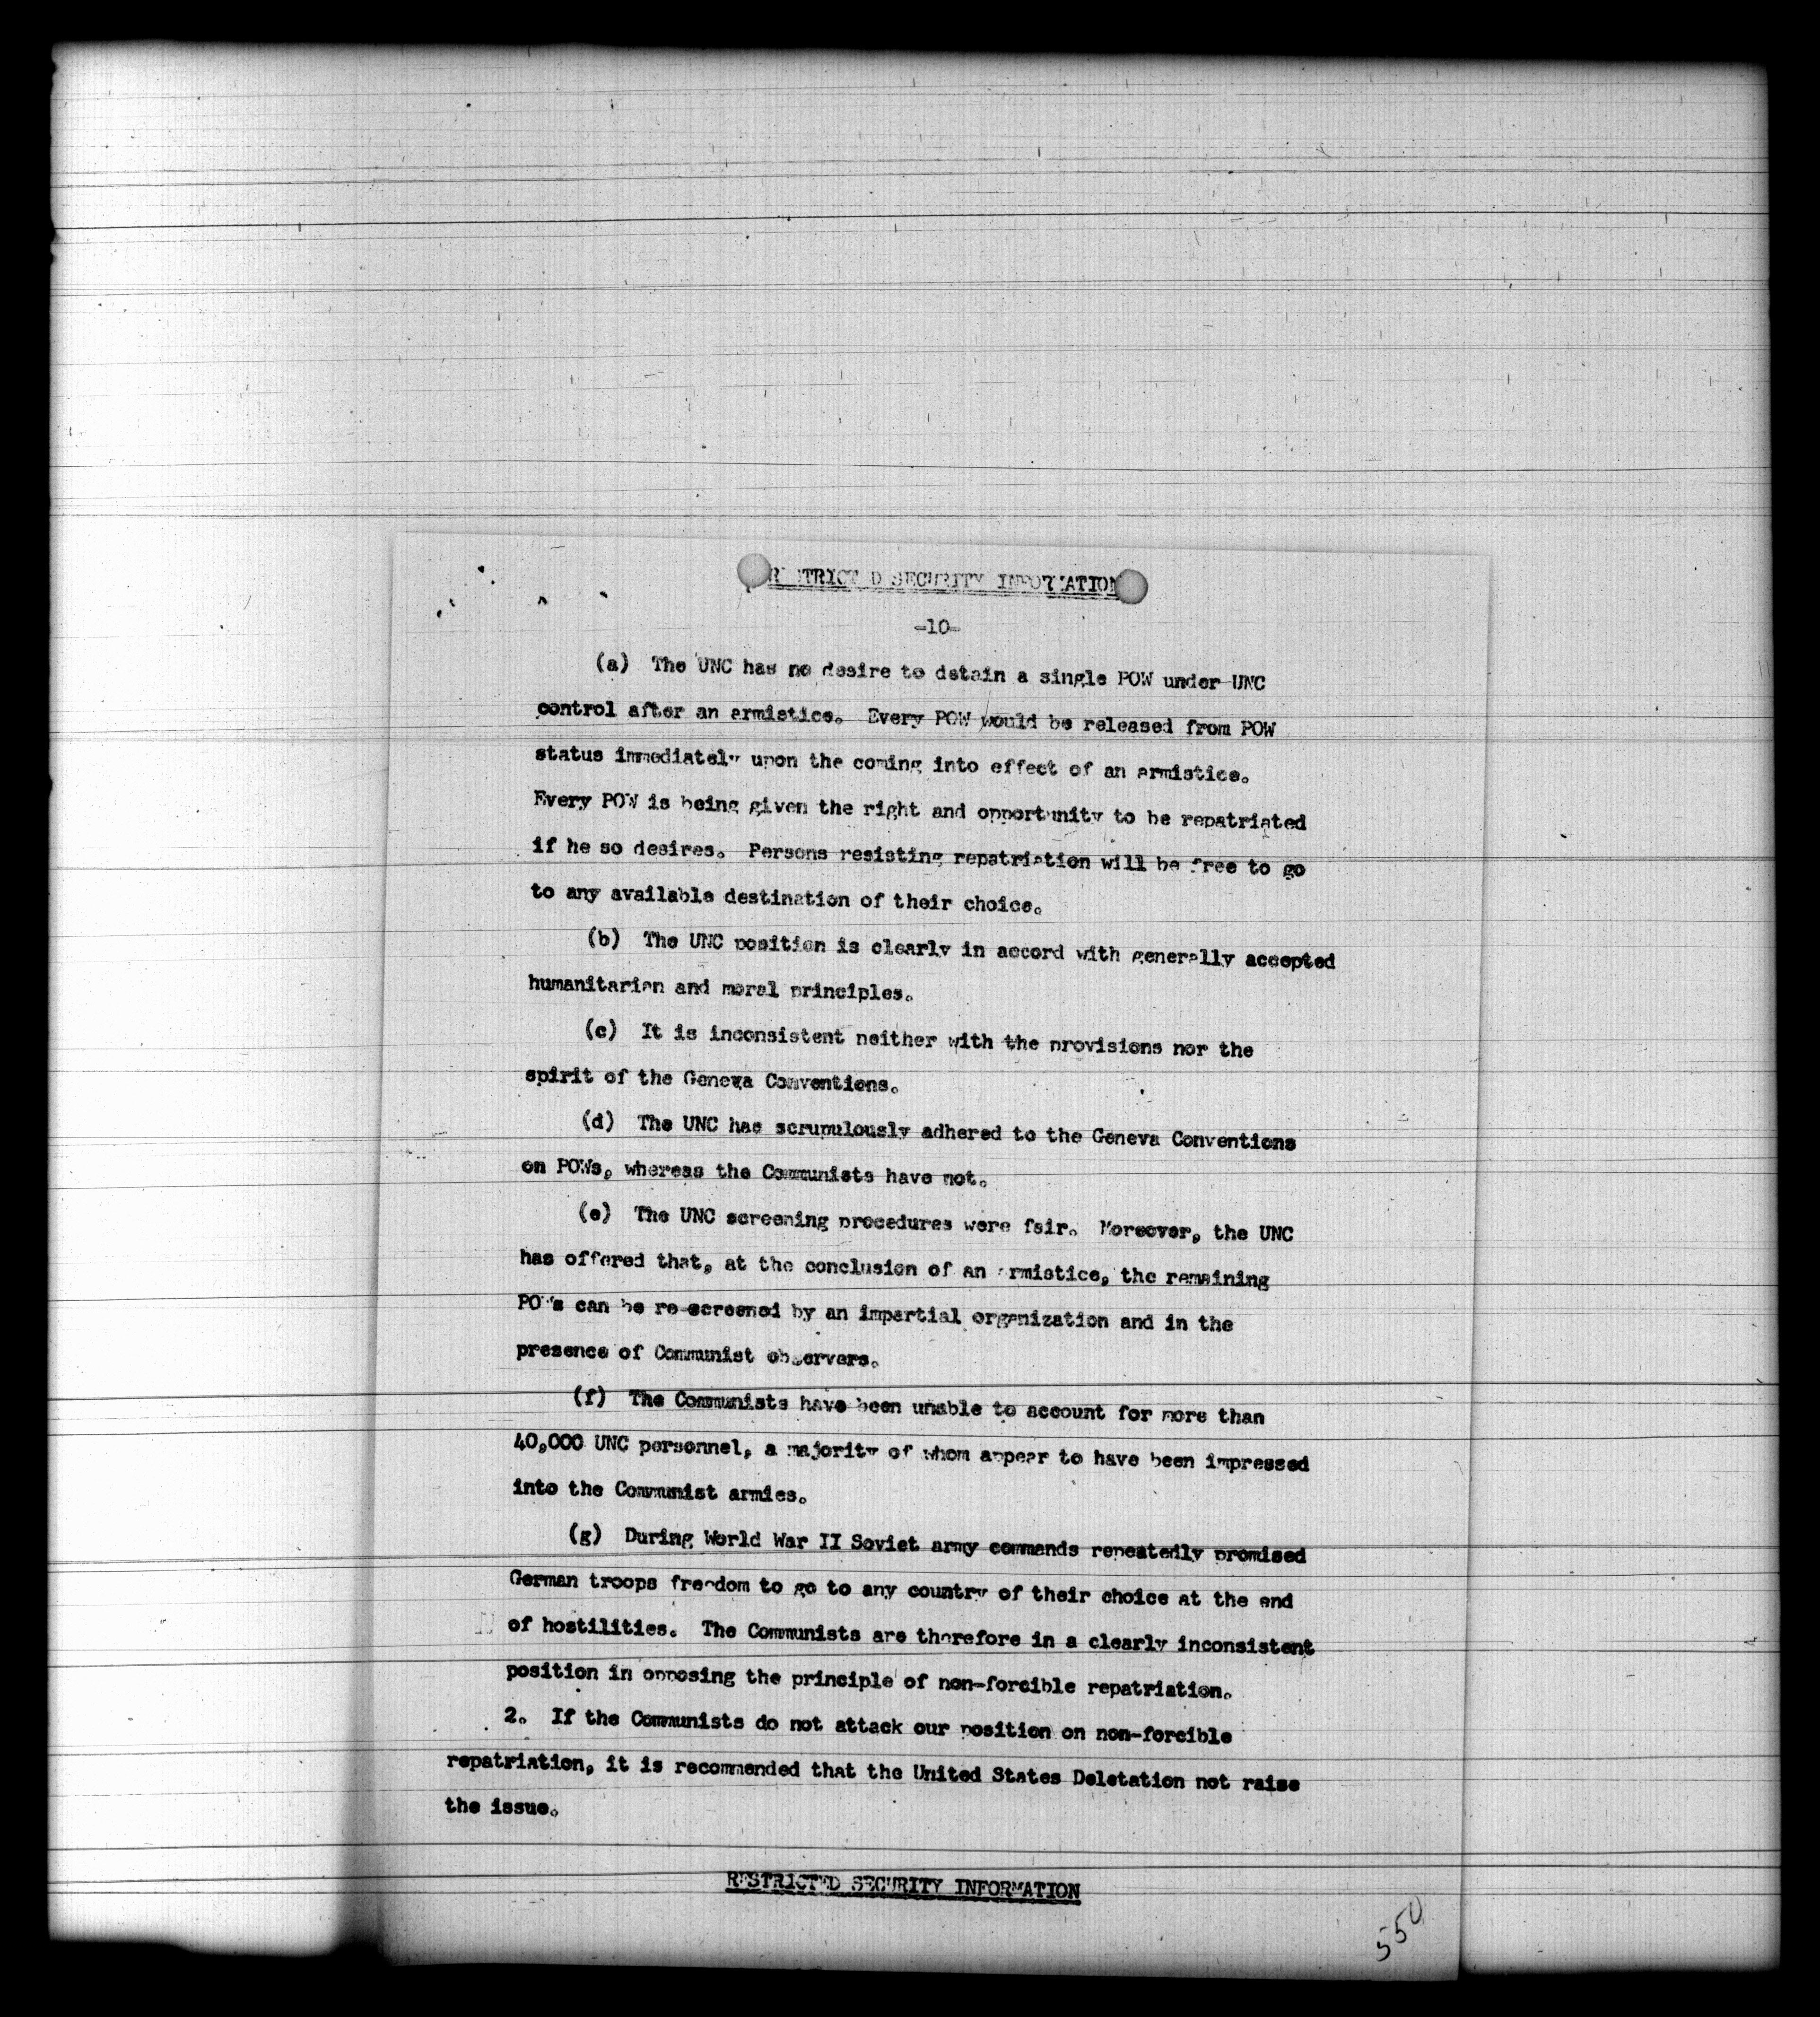 RESTRICTED SECURITY INFORMATION
-10-
(a) The UNC has no desire to detain a single POW under UNC
control after an armistice. Every POW would be released from POW
status immediately upon the coming into effect of an armistice.
Every POW is being given the right and opportunity to be repatriated
if he so desires. Persons resisting repatriation will be free to go
to any available destination of their choice.
(b) The UNC position is clearly in accord with generally accepted
humanitarian and moral principles.
(c) It is inconsistent neither with the provisions nor the
spirit of the Geneva Conventions.
(d) The UNC has scrupulously adhered to the Geneva Conventions
on POWs, whereas the Communists have not.
(e) The UNC screening procedures were fair. Moreover, the UNC
has offered that, at the conclusion of an armistice, the remaining
POWs can be re-screened by an impartial organization and in the
presence of Communist observers.
(f) The Communists have been unable to account for more than
40,000 UNC personnel, a majority of whom appear to have been impressed
into the Communist armies.
(g) During World War II Soviet army commands repeatedly promised
German troops freedom to go to any country of their choice at the end
of hostilities. The Communists are therefore in a clearly inconsistent
position in opposing the principle of non-forcible repatriation.
2. If the Communists do not attack our position on non-forcible
repatriation, it is recommended that the United States Deletation not raise
the issue.
RESTRICTED SECURITY INFORMATION
550